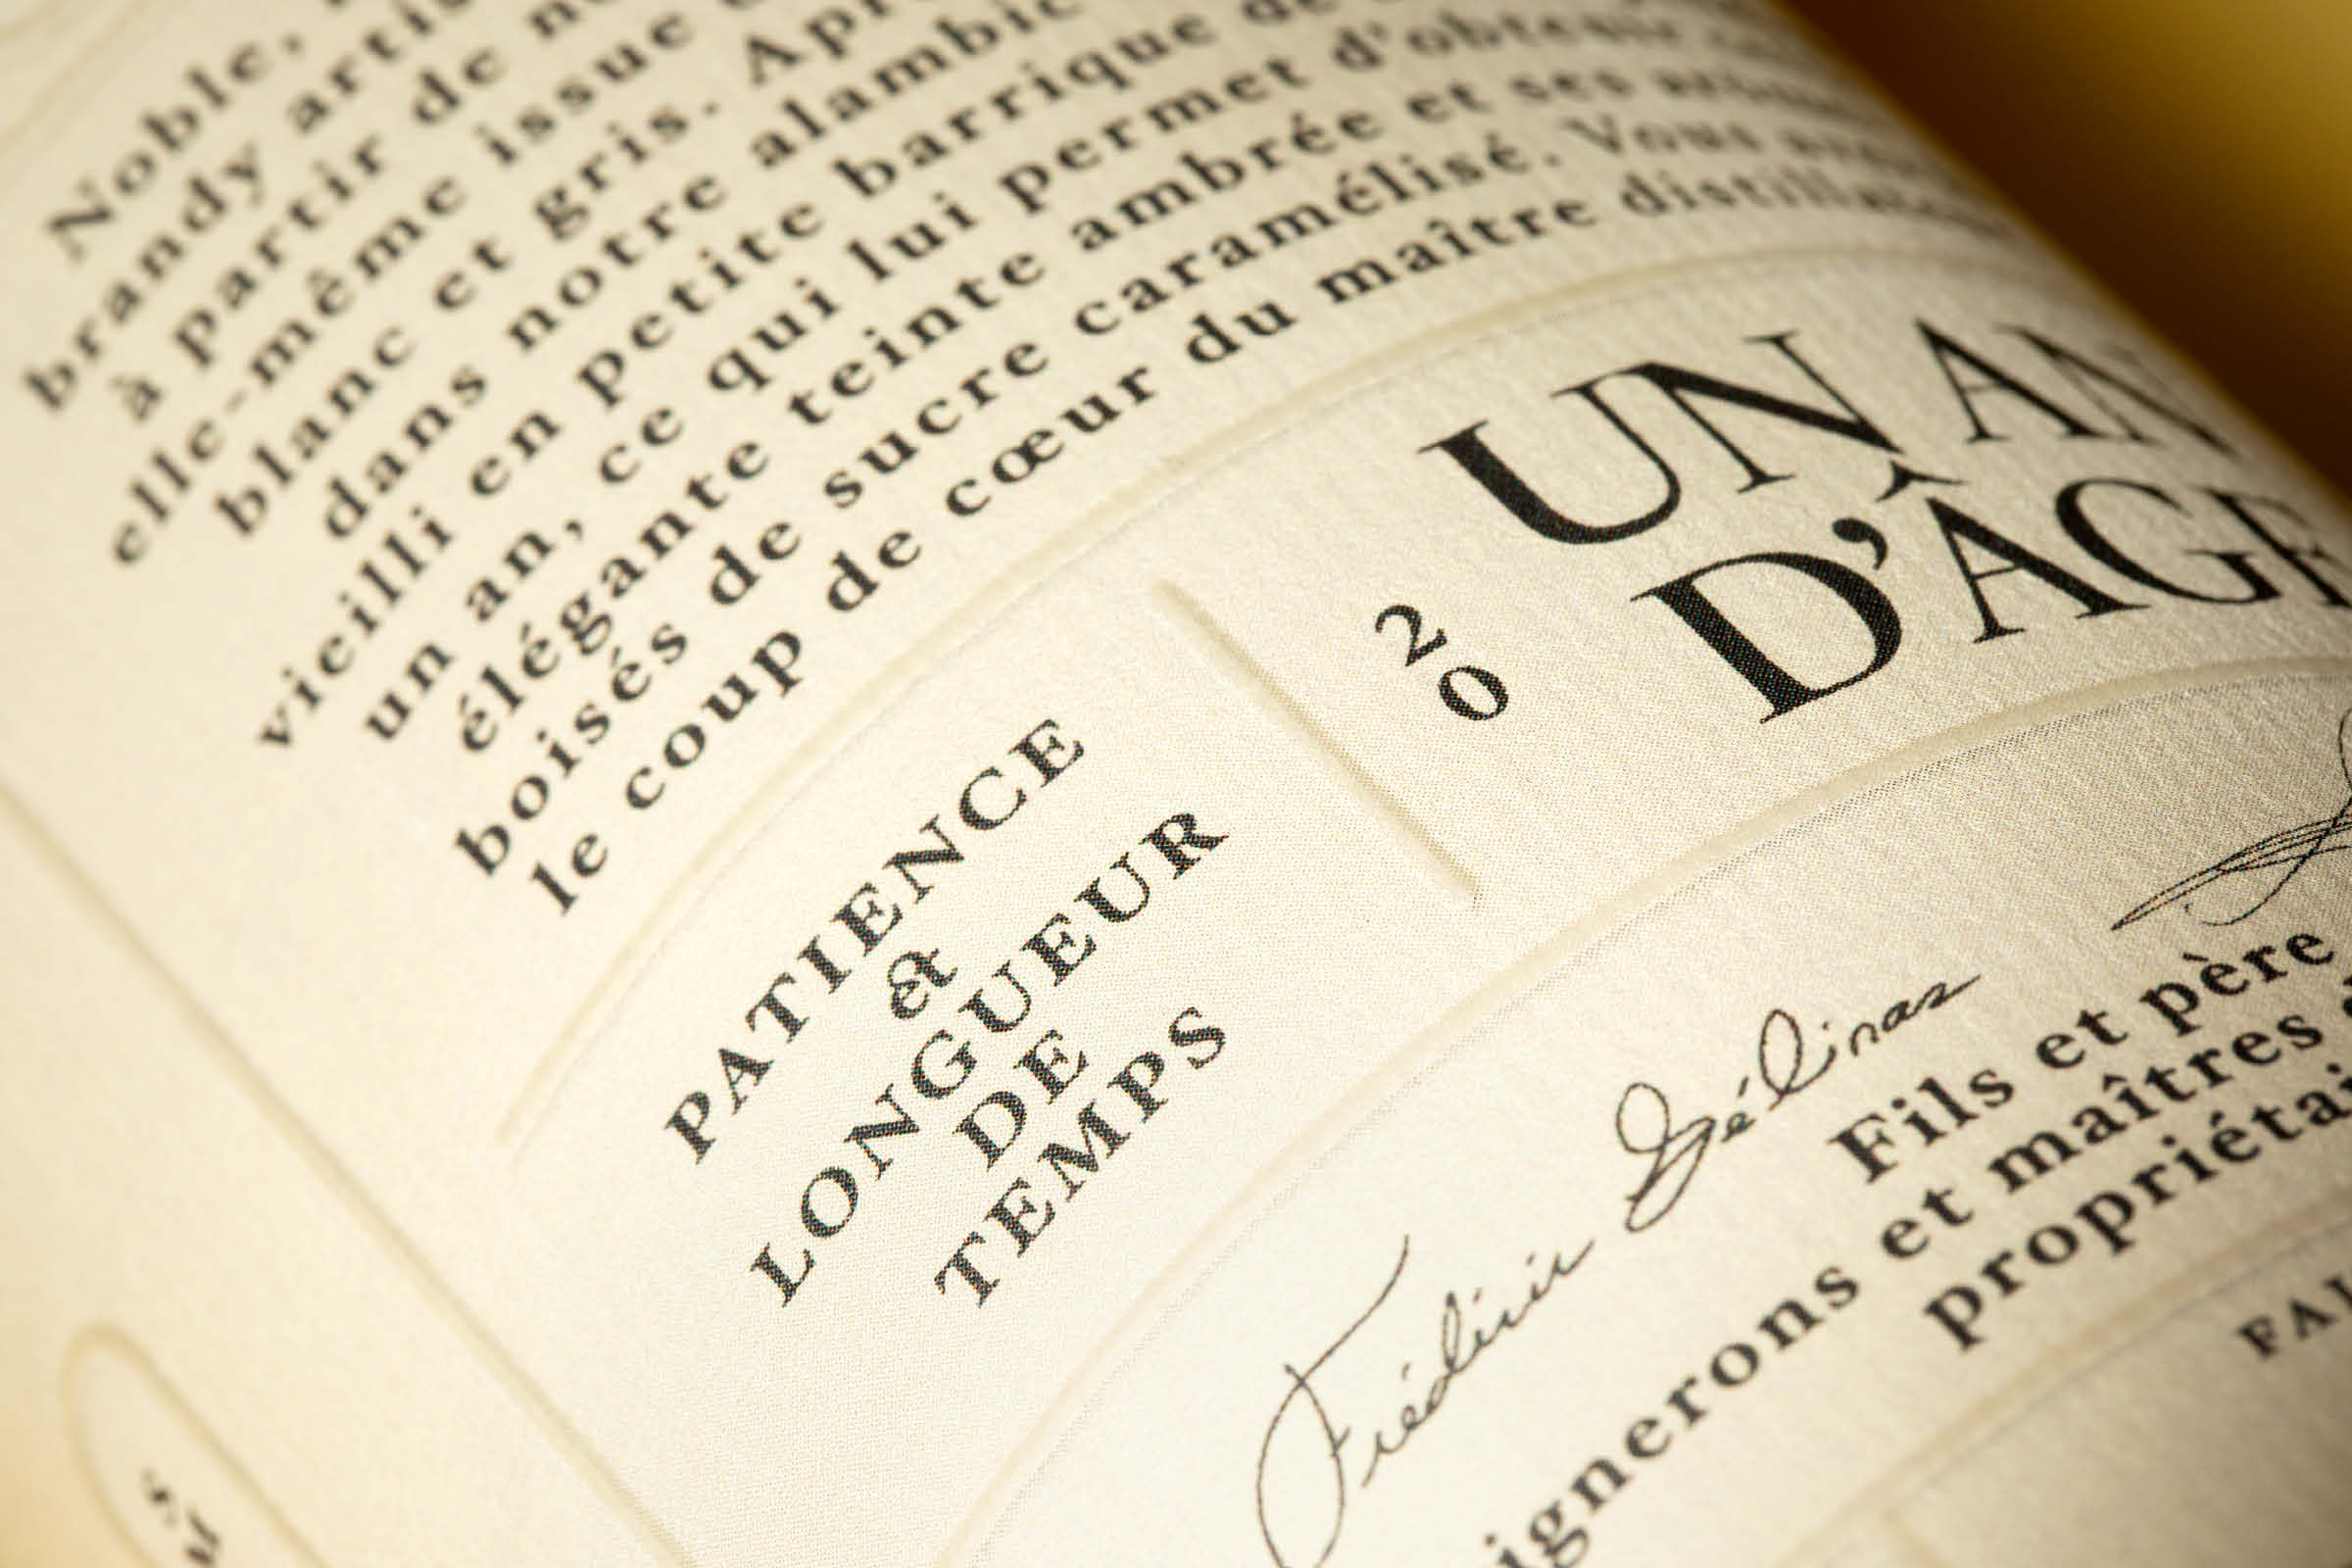 Noble,
brandy
à partir de
elle-même issue
blanc et gris.
dans notre alambic
vieilli en petite barrique de
un an, ce qui lui permet d'obtenir
élégante teinte ambrée et ses
boisés de sucre caramélisé. Vous
le coup de cœur du maître
UN AN
D'ÂGE
20
PATIENCE
&
LONGUEUR
DE
TEMPS
Frédéric Gélinas
Fils et père
et maîtres